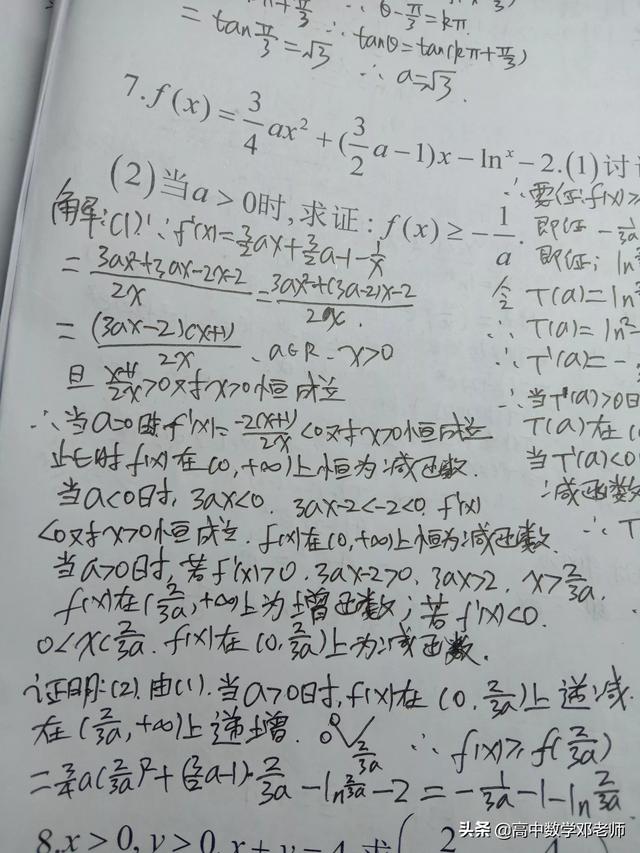 = tan π/3 = √3 ∴ tanθ = tan(kπ + π/3)
θ - π/3 = kπ
∴ a = √3.
7. f(x) = 3/4 ax² + (3/2 a - 1)x - lnˣ - 2.(1)讨
(2)当a > 0时,求证: f(x) ≥ - 1/a.
解:(1)∵f'(x) = 3/2 ax + 3/2 a - 1 - 1/x
= (3ax²+3ax-2x-2)/2x = (3ax²+(3a-2)x-2)/2x.
= (3ax-2)(x+1)/2x . a∈R . x>0
且 (x+1)/2x >0对x>0恒成立
∴当a=0时f'(x) = -2(x+1)/2x <0对x>0恒成立
此时f(x)在(0,+∞)上恒为减函数.
当a<0时, 3ax<0. 3ax-2<-2<0. f'(x)
<0对x>0恒成立. f(x)在(0,+∞)上恒为减函数.
当a>0时,若f'(x)>0. 3ax-2>0. 3ax>2. x>2/3a.
f(x)在(2/3a,+∞)上为增函数;若f'(x)<0.
0<x<2/3a. f(x)在(0,2/3a)上为减函数.
证明:(2).由(1).当a>0时,f(x)在(0,2/3a)上递减.
在(2/3a,+∞)上递增. ∴ f(x)≥f(2/3a)
= 3/4 a(2/3a)² + (3/2 a-1)·2/3a - ln 2/3a - 2 = - 1/3a - 1 - ln 2/3a.
∴要证:f(x)≥
即证 - 1/3a
即证; ln
令 T(a)=ln
∴ T(a)=ln²-
∴ T'(a)= -
∴当T'(a)>0时
T(a)在(0
当T'(a)<0
减函数
∴ T
8.x > 0, y > 0, x + y = 4, 求( 2 4
头条 @高中数学邓老师